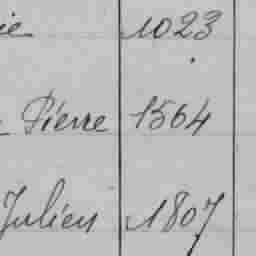 ie 1023
Pierre 1564
Julien 1807